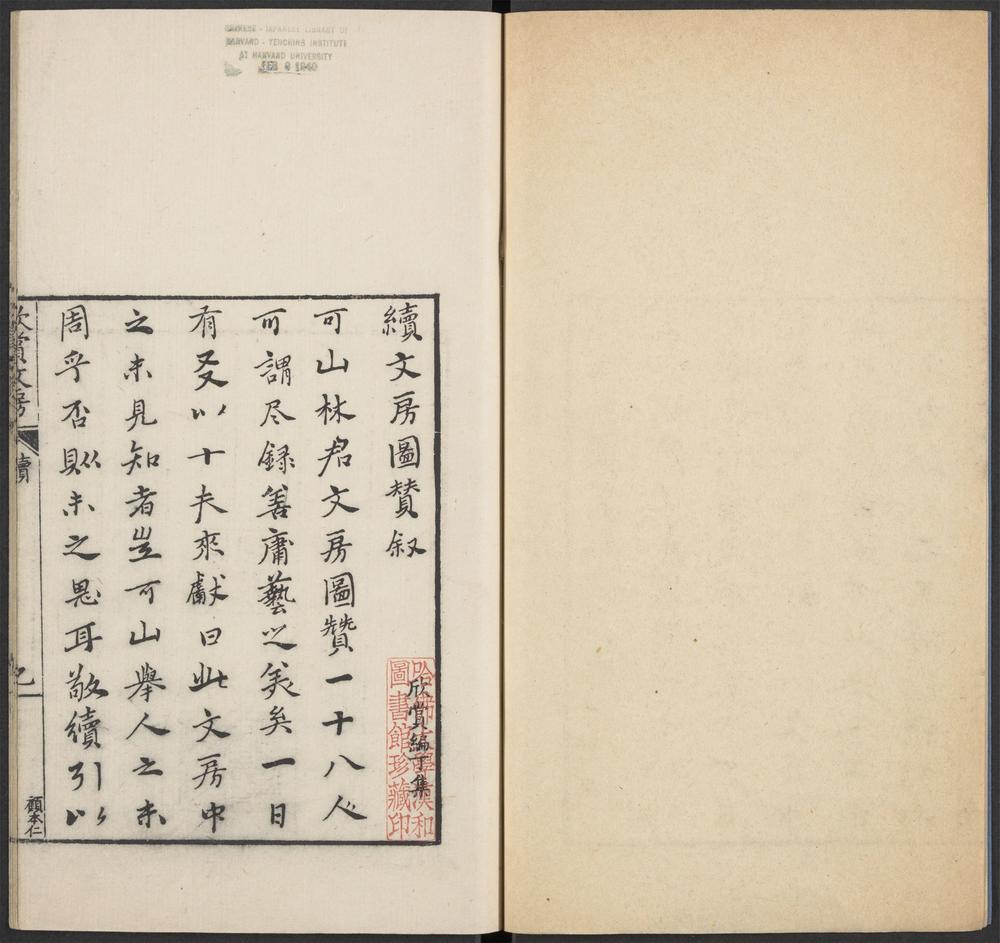 CHINESE - JAPANESE LIBRARY OF
HARVARD - YENCHING INSTITUTE
AT HARVARD UNIVERSITY
FEB 6 1940
續文房圖賛叙
欣賞編丁集
哈佛大學漢和
圖書館珍藏印
可山林君文房圖贊一十八人
可謂尽録善庸藝之美矣一日
有叉以十夫來獻曰此文房中
之未見知者岂可山舉人之未
周乎否則未之思耳敬續引以
欣賞文房
續
顧本仁